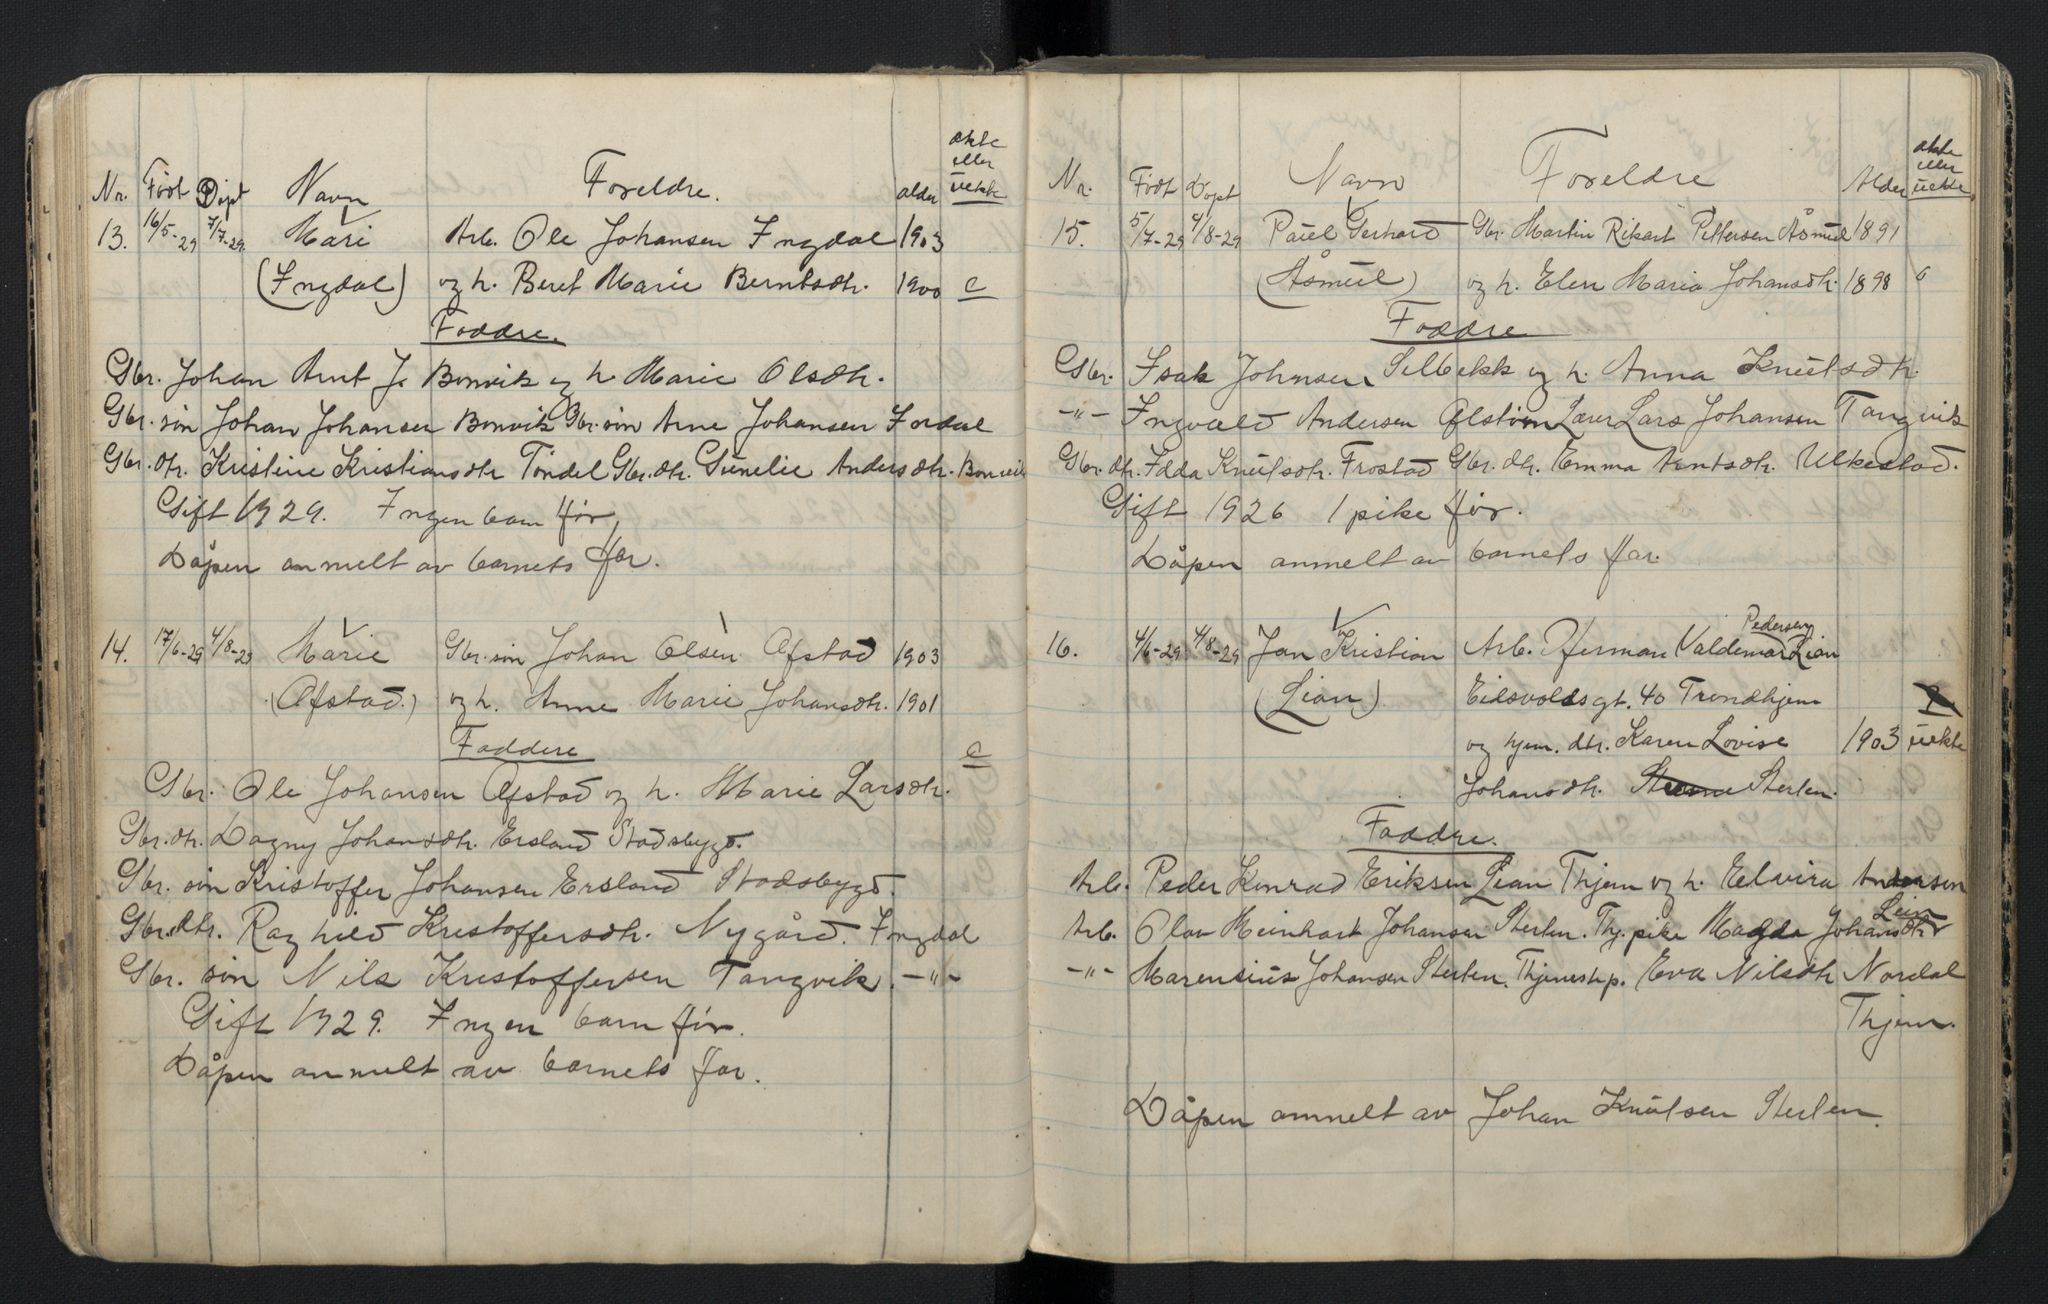 ekte
eller
uekte
Nr. Født Døpt Navn Foreldre. alder
13. 16/5-29 7/7-29. Mari Arb. Ole Johansen Ingdal 1903
(Ingdal) og h. Beret Marie Berntsdtr. 1900 e
Faddre.
Gbr. Johan Arnt J. Bonvik og h. Marie Olsdtr.
Gbr. søn Johan Johansen Bonvik Gbr. søn Arne Johansen Indal
Gbr. dtr. Kristine Kristiansdtr Tøndel Gbr. dtr. Gunelie Andersdtr. Bonvik
Gift 1929. Ingen barn før,
Dåpen anmelt av barnets far.
14. 17/6-29 4/8-29 Marie Gbr. søn Johan Olsen Ofstad 1903
(Ofstad.) og h. Anne Marie Johansdtr. 1901
Faddere e
Gbr. Ole Johansen Ofstad og h. Marie Larsdtr.
Gbr. dtr. Dagny Johansdtr. Ersland Stadsbygd.
Gbr. søn Kristoffer Johansen Ersland Stadsbygd.
Gbr. dtr. Raghild Kristoffersdtr. Nygård. Ingdal
Gbr. søn Nils Kristoffersen Tangvik. -"-
Gift 1929. Ingen barn før.
Dåpen anmelt av barnets far.
ekte
eller
uekte
Nr. Født Døpt Navn Foreldre Alder
15. 5/7-29 4/8-29 Paul Gerhard Gbr. Martin Rikart Pettersen Åsmul 1891
(Åsmul) og h. Elen Maria Johansdtr. 1898 e
Faddre
Gbr. Isak Johnsen Selbekk og h. Anna Knutsdtr.
-"- Ingvald Andersen Ofstion Lærer Lars Johansen Tangvik
Gbr. dtr. Idda Knutsdtr. Frostad Gbr. dtr. Emma Arntsdtr. Ulkestad.
Gift 1926 1 pike før.
Dåpen anmelt av barnets far.
Pedersen
16. 4/6-29 4/8-29 Jan Kristian Arb. Herman Valdemar Lian
(Lian) Eidsvoldsgt. 40 Trondhjem
og hjem. dtr. Karen Lovise 1903 uekte
Johansdtr. Sterten.
Faddre.
Arb. Peder Konrad Eriksen Lian Thjem og h. Elvira Andersen
Lein
Arb. Olav Meinhart Johansen Sterten. Thj. pike Magda Johansdtr
-"- Marensius Johansen Sterten. Thjenestp. Eva Nilsdtr Nordal
Thjem.
Dåpen anmelt av Johan Knutsen Sterten.